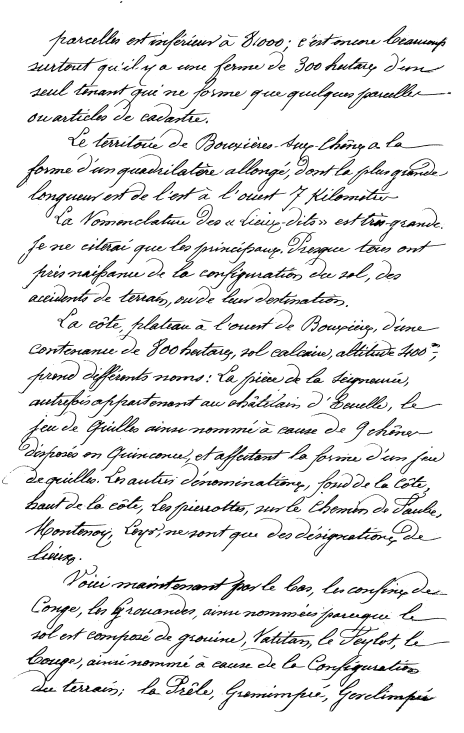 parcelles est inférieur à 8.000; c'est encore beaucoup
surtout qu'il y a une ferme de 300 hectares d'un
seul tenant qui ne forme que quelques parcelles
ou articles de cadastre.
Le territoire de Bouxières-Sux-Chênes a la
forme d'un quadrilatère allongé, dont la plus grande
longueur est de l'est à l'ouest 7 Kilomètres
La Nomenclature des « Lieux-dits » est très-grande.
Je ne citerai que les principaux. Presque tous ont
pris naissance de la configuration du sol, des
accidents de terrain, ou de leur destination.
La côte, plateau à l'ouest de Bouxières, d'une
contenance de 800 hectares, sol calcaire, altitude 400m,
prend différents noms: La pièce de la Seigneurie,
autrefois appartenant au châtelain d'Ecuelle, le
jeu de Quilles ainsi nommé à cause de 9 chênes
disposés en Quinconce, et affectant la forme d'un jeu
de quilles. Les autres dénominations, fond de la Côte,
haut de la côte, les pierrottes, sur le Chemin de Faulx,
Montenoy, Leyr, ne sont que des désignations de
lieux.
Voici maintenant par le bas, les confins de
Conge, les Grouandes, ainsi nommées parce que le
sol est composé de grouine, Vatitan, le Feylot, le
Couge, ainsi nommé à cause de la Configuration
du terrain; la Prêle, Gremimpré,